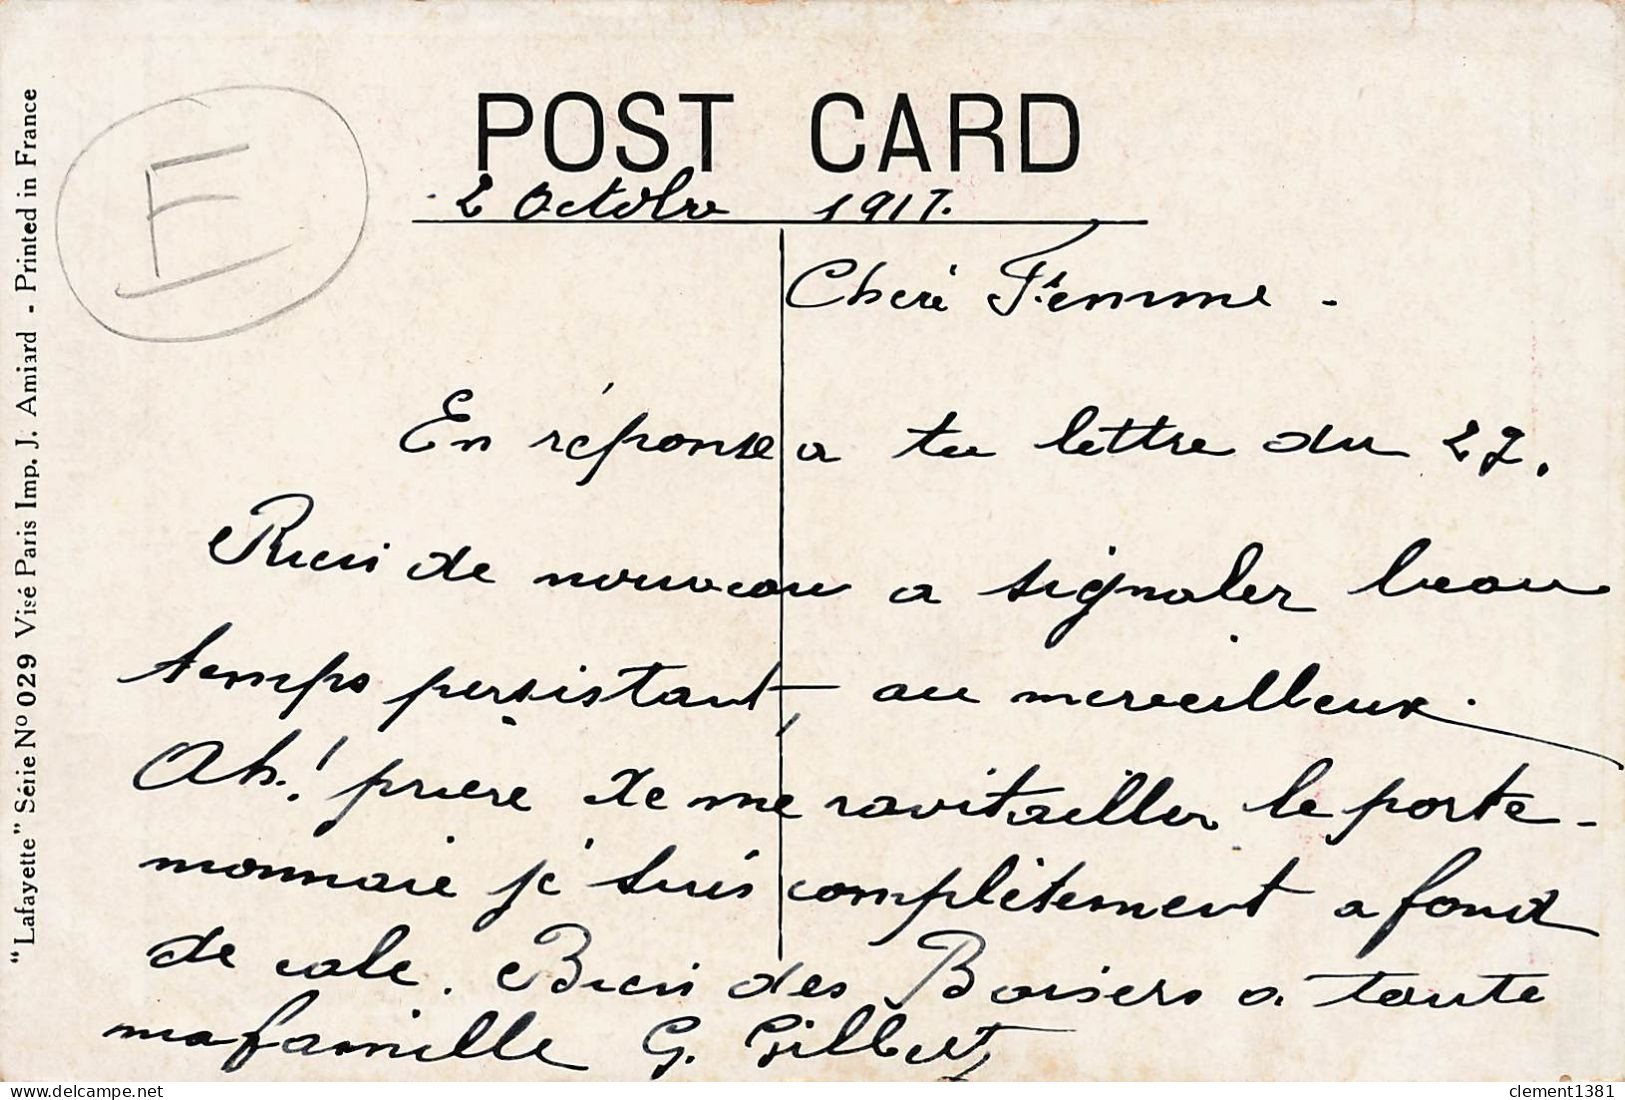 POST CARD
2 Octobre 1917.
Cheré Femme -
En réponse a ta lettre du 27.
Rien de nouveau a signaler beau
temps persistant, au merveilleux.
Ah! prière de me ravitailler le porte-
monnaie je suis complètement a fond
de cale. Bien des Baisers a toute
ma famille G. Gilbert
E
"Lafayette" Série No 029 Visé Paris Imp. J. Amiard - Printed in France
delcampe.net
clement1381